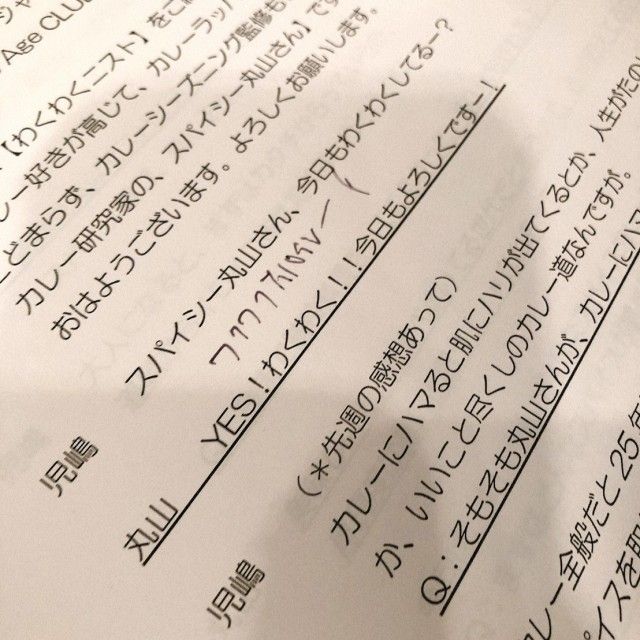 Age CLU
【わくわくニスト】をこ
レー好きが高じて、カレーラッ
とどまらず、カレーシーズニング監修も
カレー研究家の、スパイシー丸山さん】です
おはようございます。よろしくお願いします。
児嶋 スパイシー丸山さん、今日もわくわくしてるー?
ワクワク
丸山 YES!わくわく!!今日もよろしくですー!
児嶋 (*先週の感想あって)
カレーにハマると肌にハリが出てくるとか、人生がたの
か、いいこと尽くしのカレー道なんですが。
Q:そもそも丸山さんが、カレーにハマ
レー全般だと25
パイスを